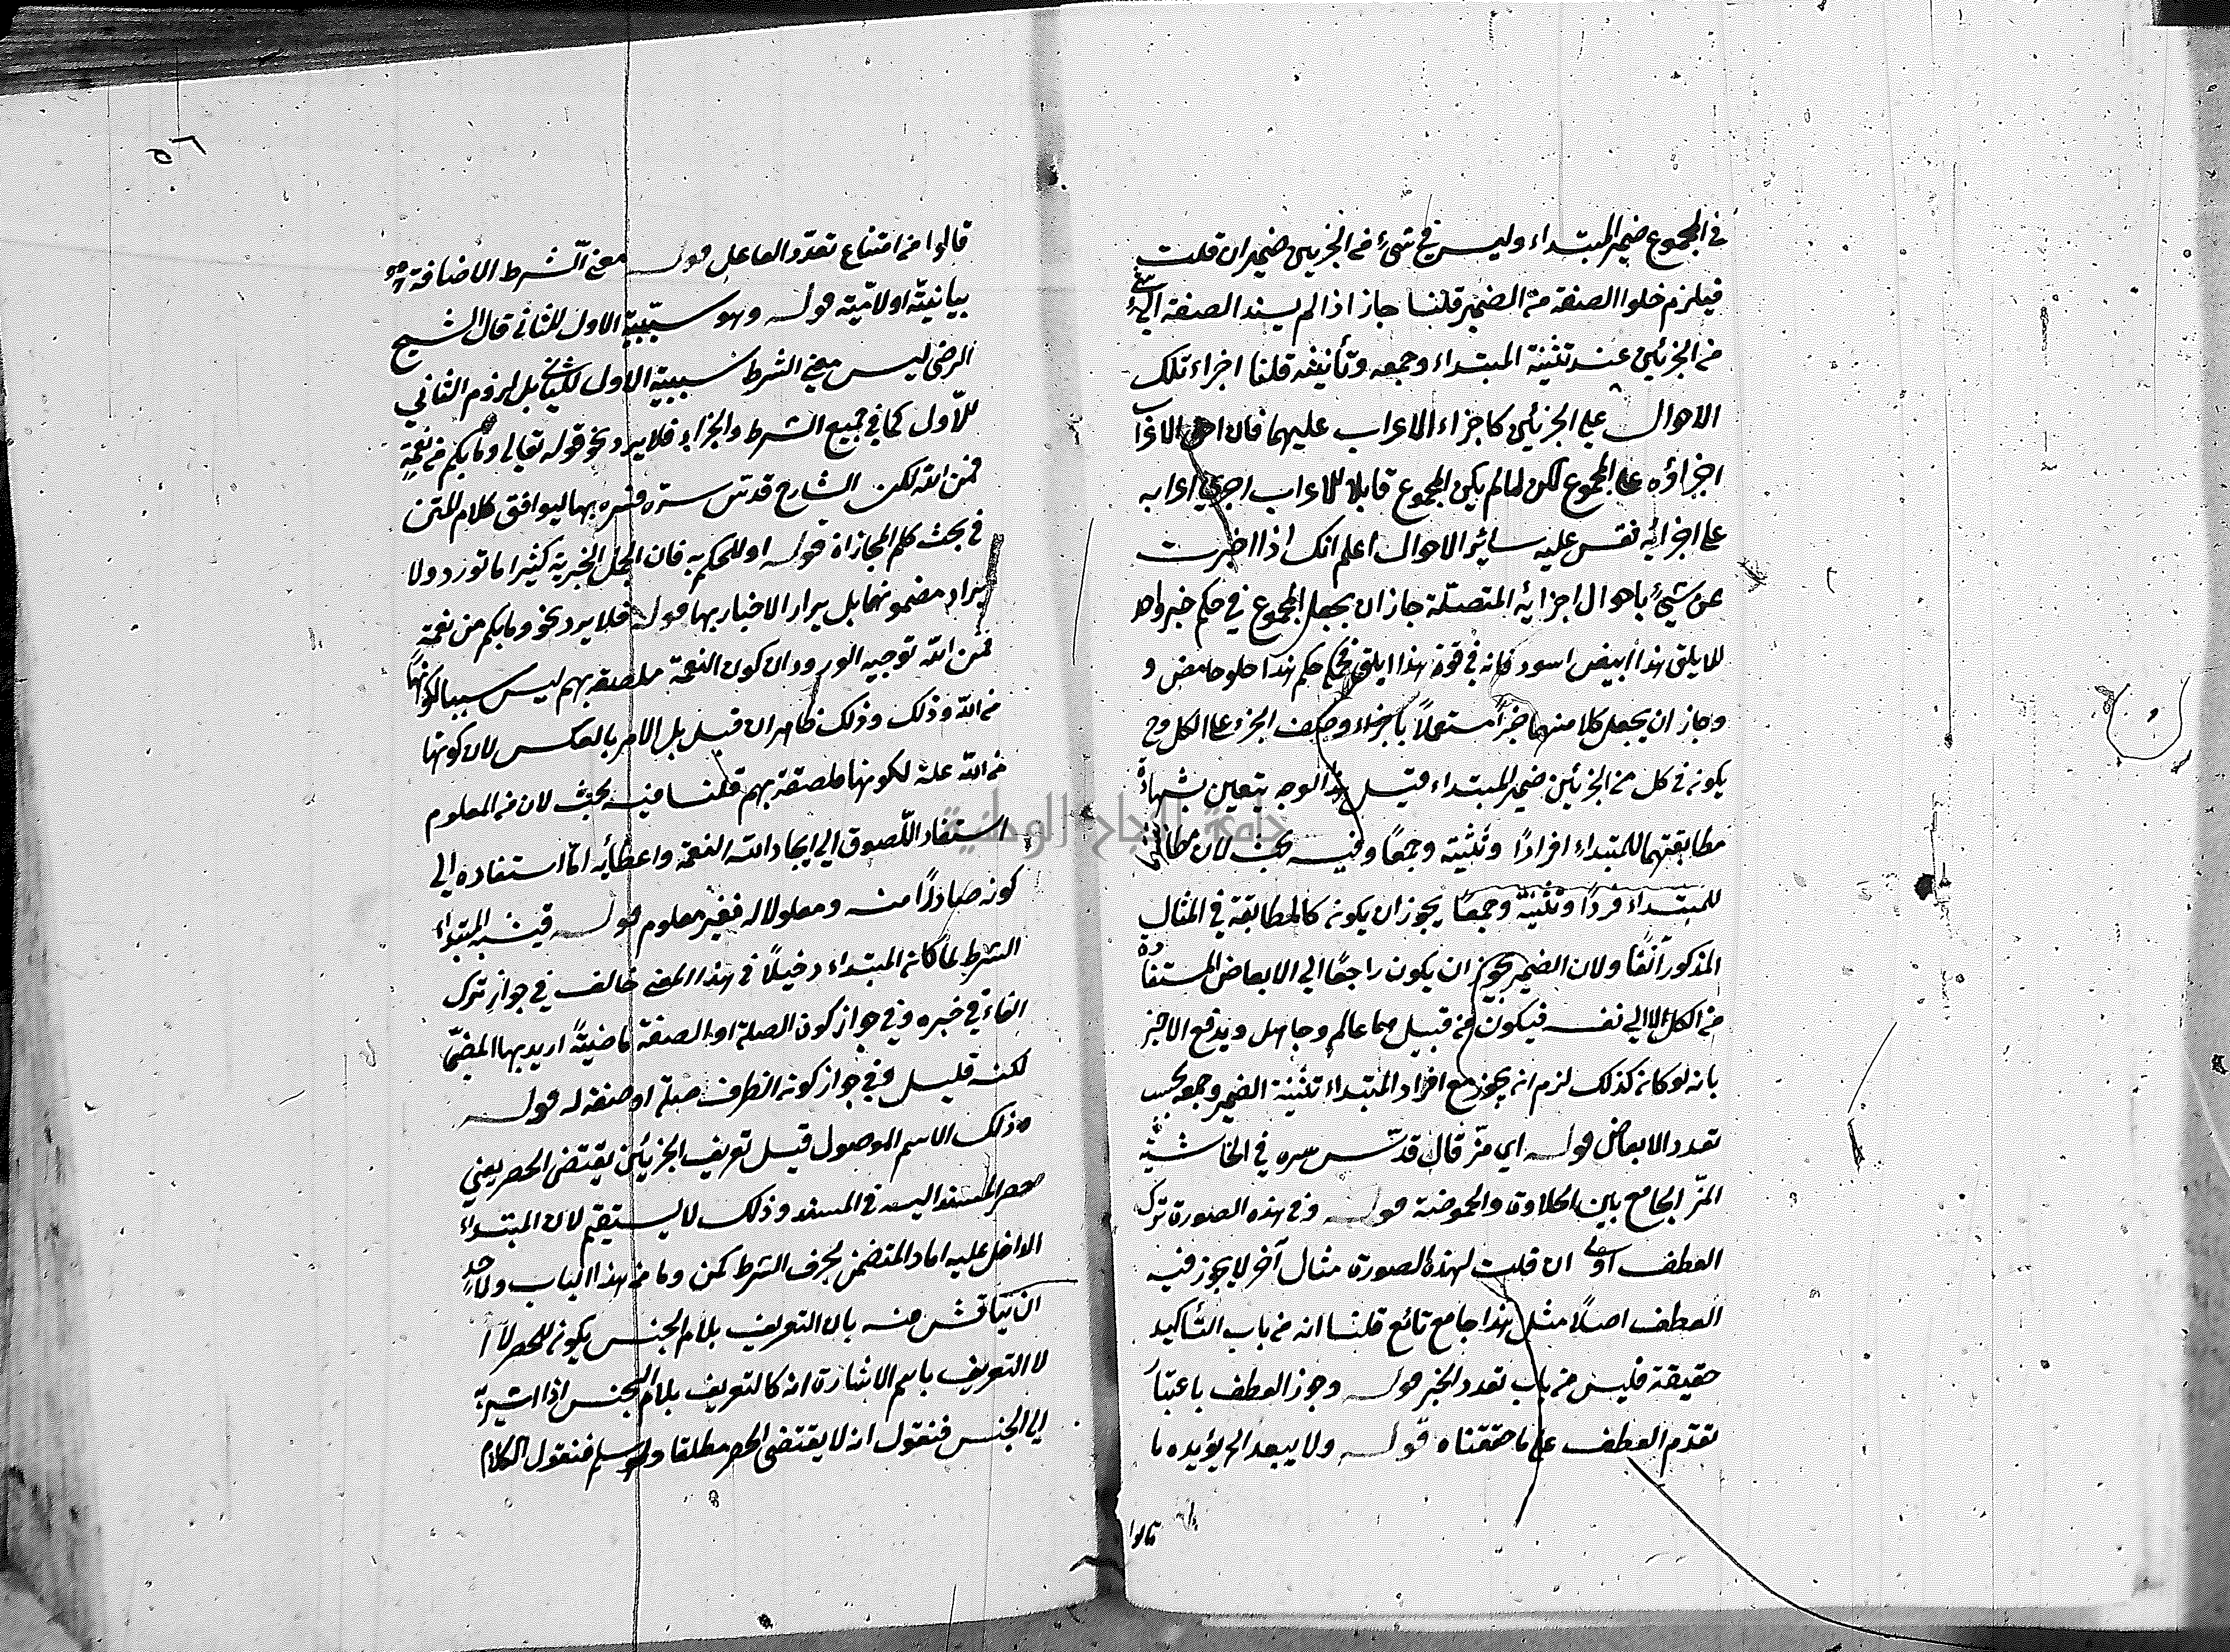 في المجموع ضمير المبتداء وليس في شئ من الجزئين ضمير ان قلت
فيلزم خلوا الصفة من الضمير قلنا جاز اذا لم يسند الصفة الى شئ
من الجزئين عند تثنية المبتداء وجمعه وتأنيثه قلنا اجراء تلك
الاحوال على الجزئين كاجراء الاعراب عليهما فان احق الاعراب
اجراؤه على المجموع لكن لما لم يكن المجموع قابلا للاعراب اجرى اعرابه
على اجزائه فقس عليه سائر الاحوال اعلم انك اذا اخبرت
عن شئ باحوال اجزائه المتصلة جاز ان يجعل المجموع في حكم خبر واحد
للابلق هذا ابيض اسود فانه في قوة هذا ابلق في حكم هذا حلو حامض و
وجاز ان يجعل كلا منهما خبراً مستقلاً باجراء وصف الجزء على الكل وح
يكون في كل من الجزئين ضمير المبتداء قيل هذا الوجه يتعين بشهادة
مطابقتهما للمبتداء افرادًا وتثنية وجمعًا وفيه بحث لان مطابقة
للمبتداء فردًا وتثنيةً وجمعًا يجوز ان يكون كالمطابقة في المثال
المذكور آنفًا ولان الضمير يجوز ان يكون راجعًا الى الابعاض المستفادة
من الكل لا الى نفسه فيكون من قبيل هما عالم وجاهل ويدفع الاخير
بانه لو كان كذلك لزم انه يجوز مع افراد المبتداء تثنية الضمير وجمعه بحسب
تعدد الابعاض قوله اي مزّ قال قدّس سره في الحاشية
المزّ الجامع بين الحلاوة والحموضة قوله وفي هذه الصورة ترك
العطف اولى ان قلت لهذه الصورة مثال آخر لا يجوز فيه
العطف اصلًا مثل هذا جامع تائع قلنا انه من باب التأكيد
حقيقة فليس من باب تعدد الخبر قوله وجوز العطف باعتبار
تقدم العطف على ما حققناه قوله ولا يبعد الخ يؤيده ما
قالوا
٥٦
قالوا من امتناع تعدّد الفاعل قوله معنى الشرط الاضافة
بيانية او لامية قوله وهو سببية الاول للثاني قال الشيخ
الرضي ليس معنى الشرط سببية الاول للثاني بل لزوم الثاني
للاّول كما في جميع الشرط والجزاء فلا يرد نحو قوله تعالى وما بكم من نعمةٍ
فمن الله لكن الشارح قدّس سرّه فسره بها ليوافق كلام المتن
في بحث كلم المجازاة قوله او للحكم به فان الجمل الخبرية كثيرا ما تورد ولا
يراد مضمونها بل يراد الاخبار بها قوله فلا يرد نحو وما بكم من نعمة
فمن الله توجيه الورود ان كون النعمة ملصقة بهم ليس سببا لكونها
من الله وذلك وذلك ظاهر ان قيل بل الامر بالعكس لان كونها
من الله علة لكونها ملصقة بهم قلنا فيه بحث لان من المعلوم
استفاد اللّصوق الى ايجاد الله النعمة واعطائه امّا استفاده الى
كونه صادرًا منه ومعلولا له فغير معلوم قوله فيشبه المبتداء
الشرط لما كان المبتداء دخيلًا في هذا المعنى خالف في جواز ترك
الفاء في خبره وفي جواز كون الصلة او الصفة ماضيةً اريد بها المضيّ
لكنه قليل وفي جواز كونه الظرف صلة او صفة له قوله
وذلك الاسم الموصول قيل تعريف الجزئين يقتضى الحصر يعني
حصر المسند اليه في المسند وذلك لا يستقيم لان المبتداء
الداخل عليه اما د المتضمن لحرف الشرط كمن وما من هذا الباب ولاحد
ان يناقش منه بان التعريف بلام الجنس يكون للحصر لا
لا التعريف باسم الاشارة انه كالتعريف بلام الجنس اذا اشير به
الى الجنس فنقول انه لا يقتضى الحصر مطلقا ولو سلم فنقول الكلام